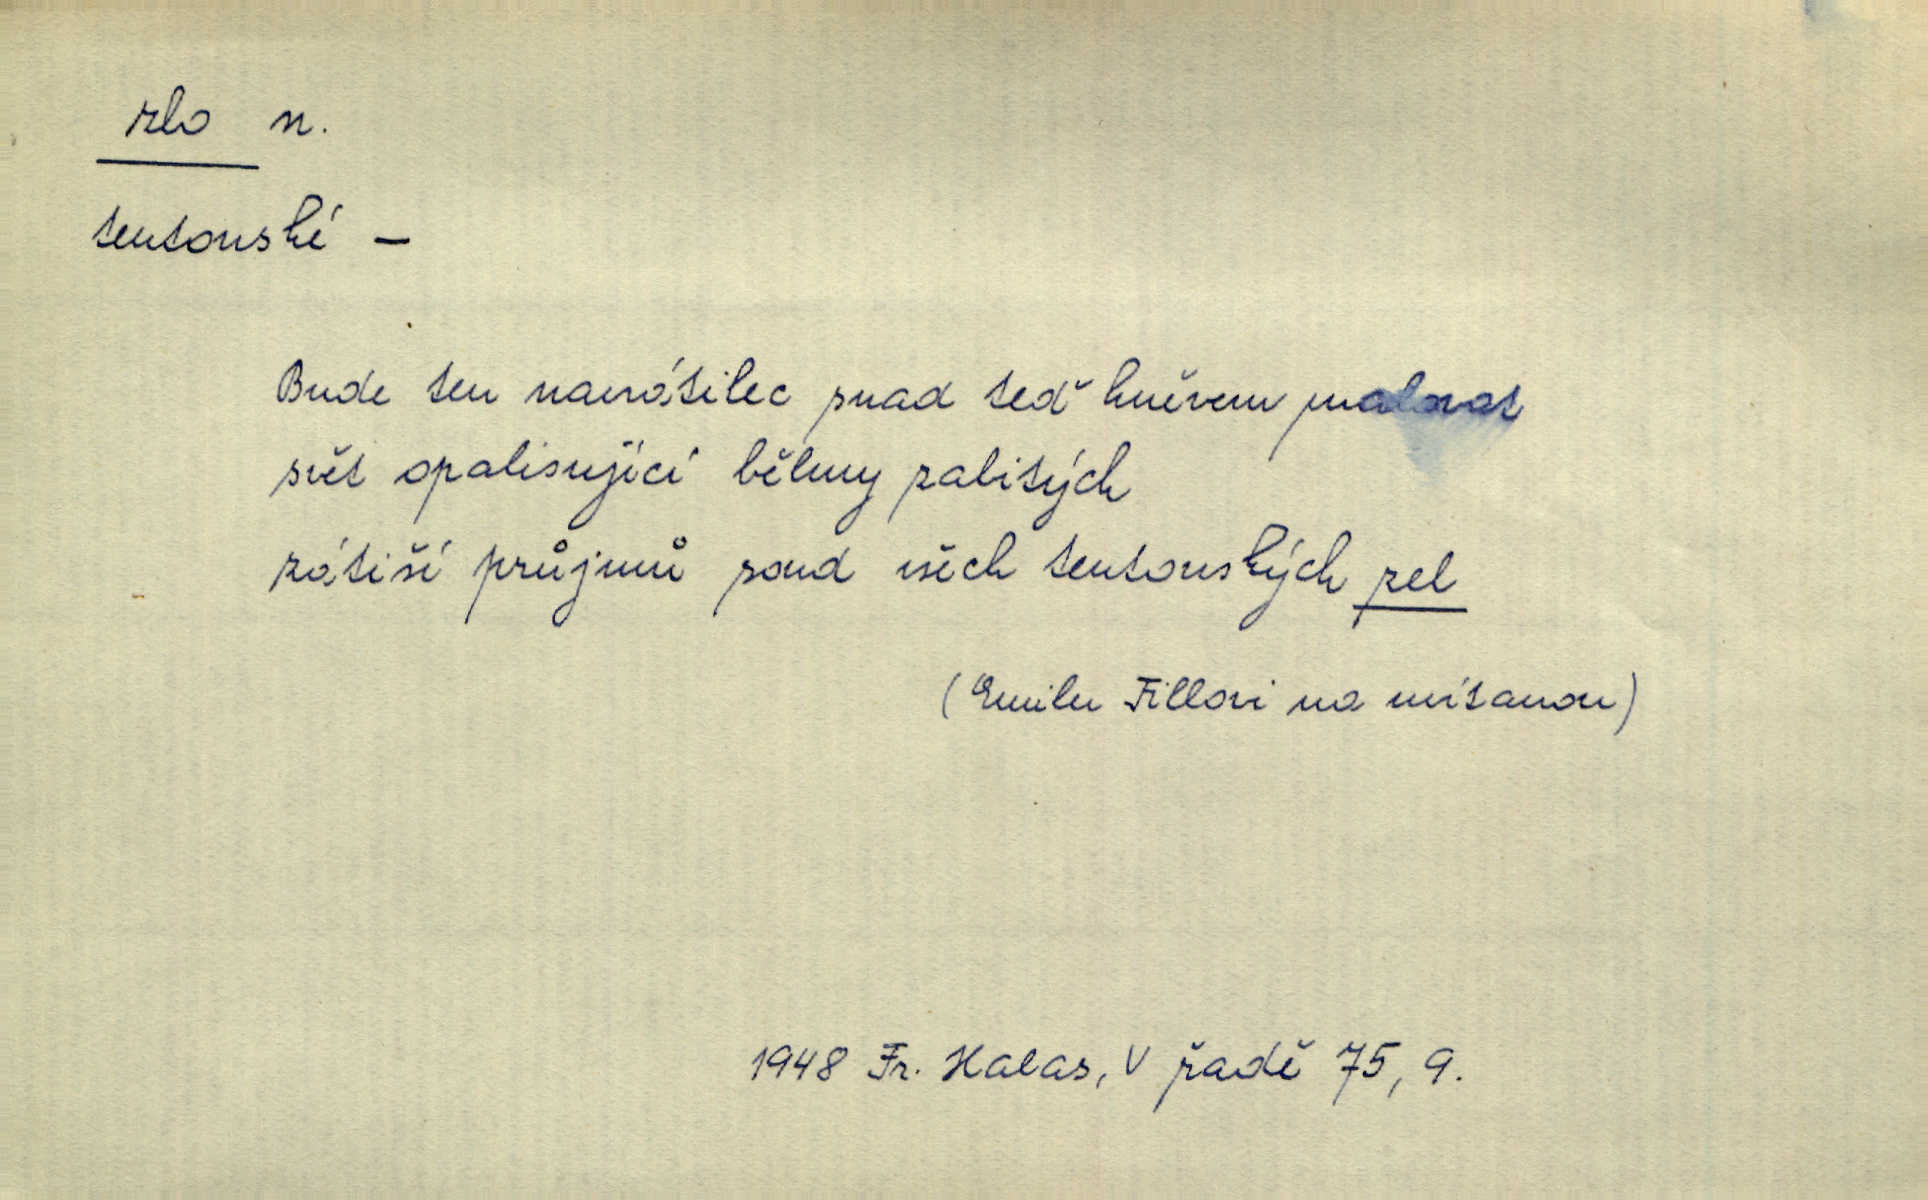 zlo n.
teutonské –
Bude ten navrátilec snad teď hněvem malovat
svět opalisující bělmy zabitých
zátiší průjmů soud všech teutonských zel
(Emilu Fillovi na uvítanou)
1948 Fr. Halas, V řadě 75, 9.